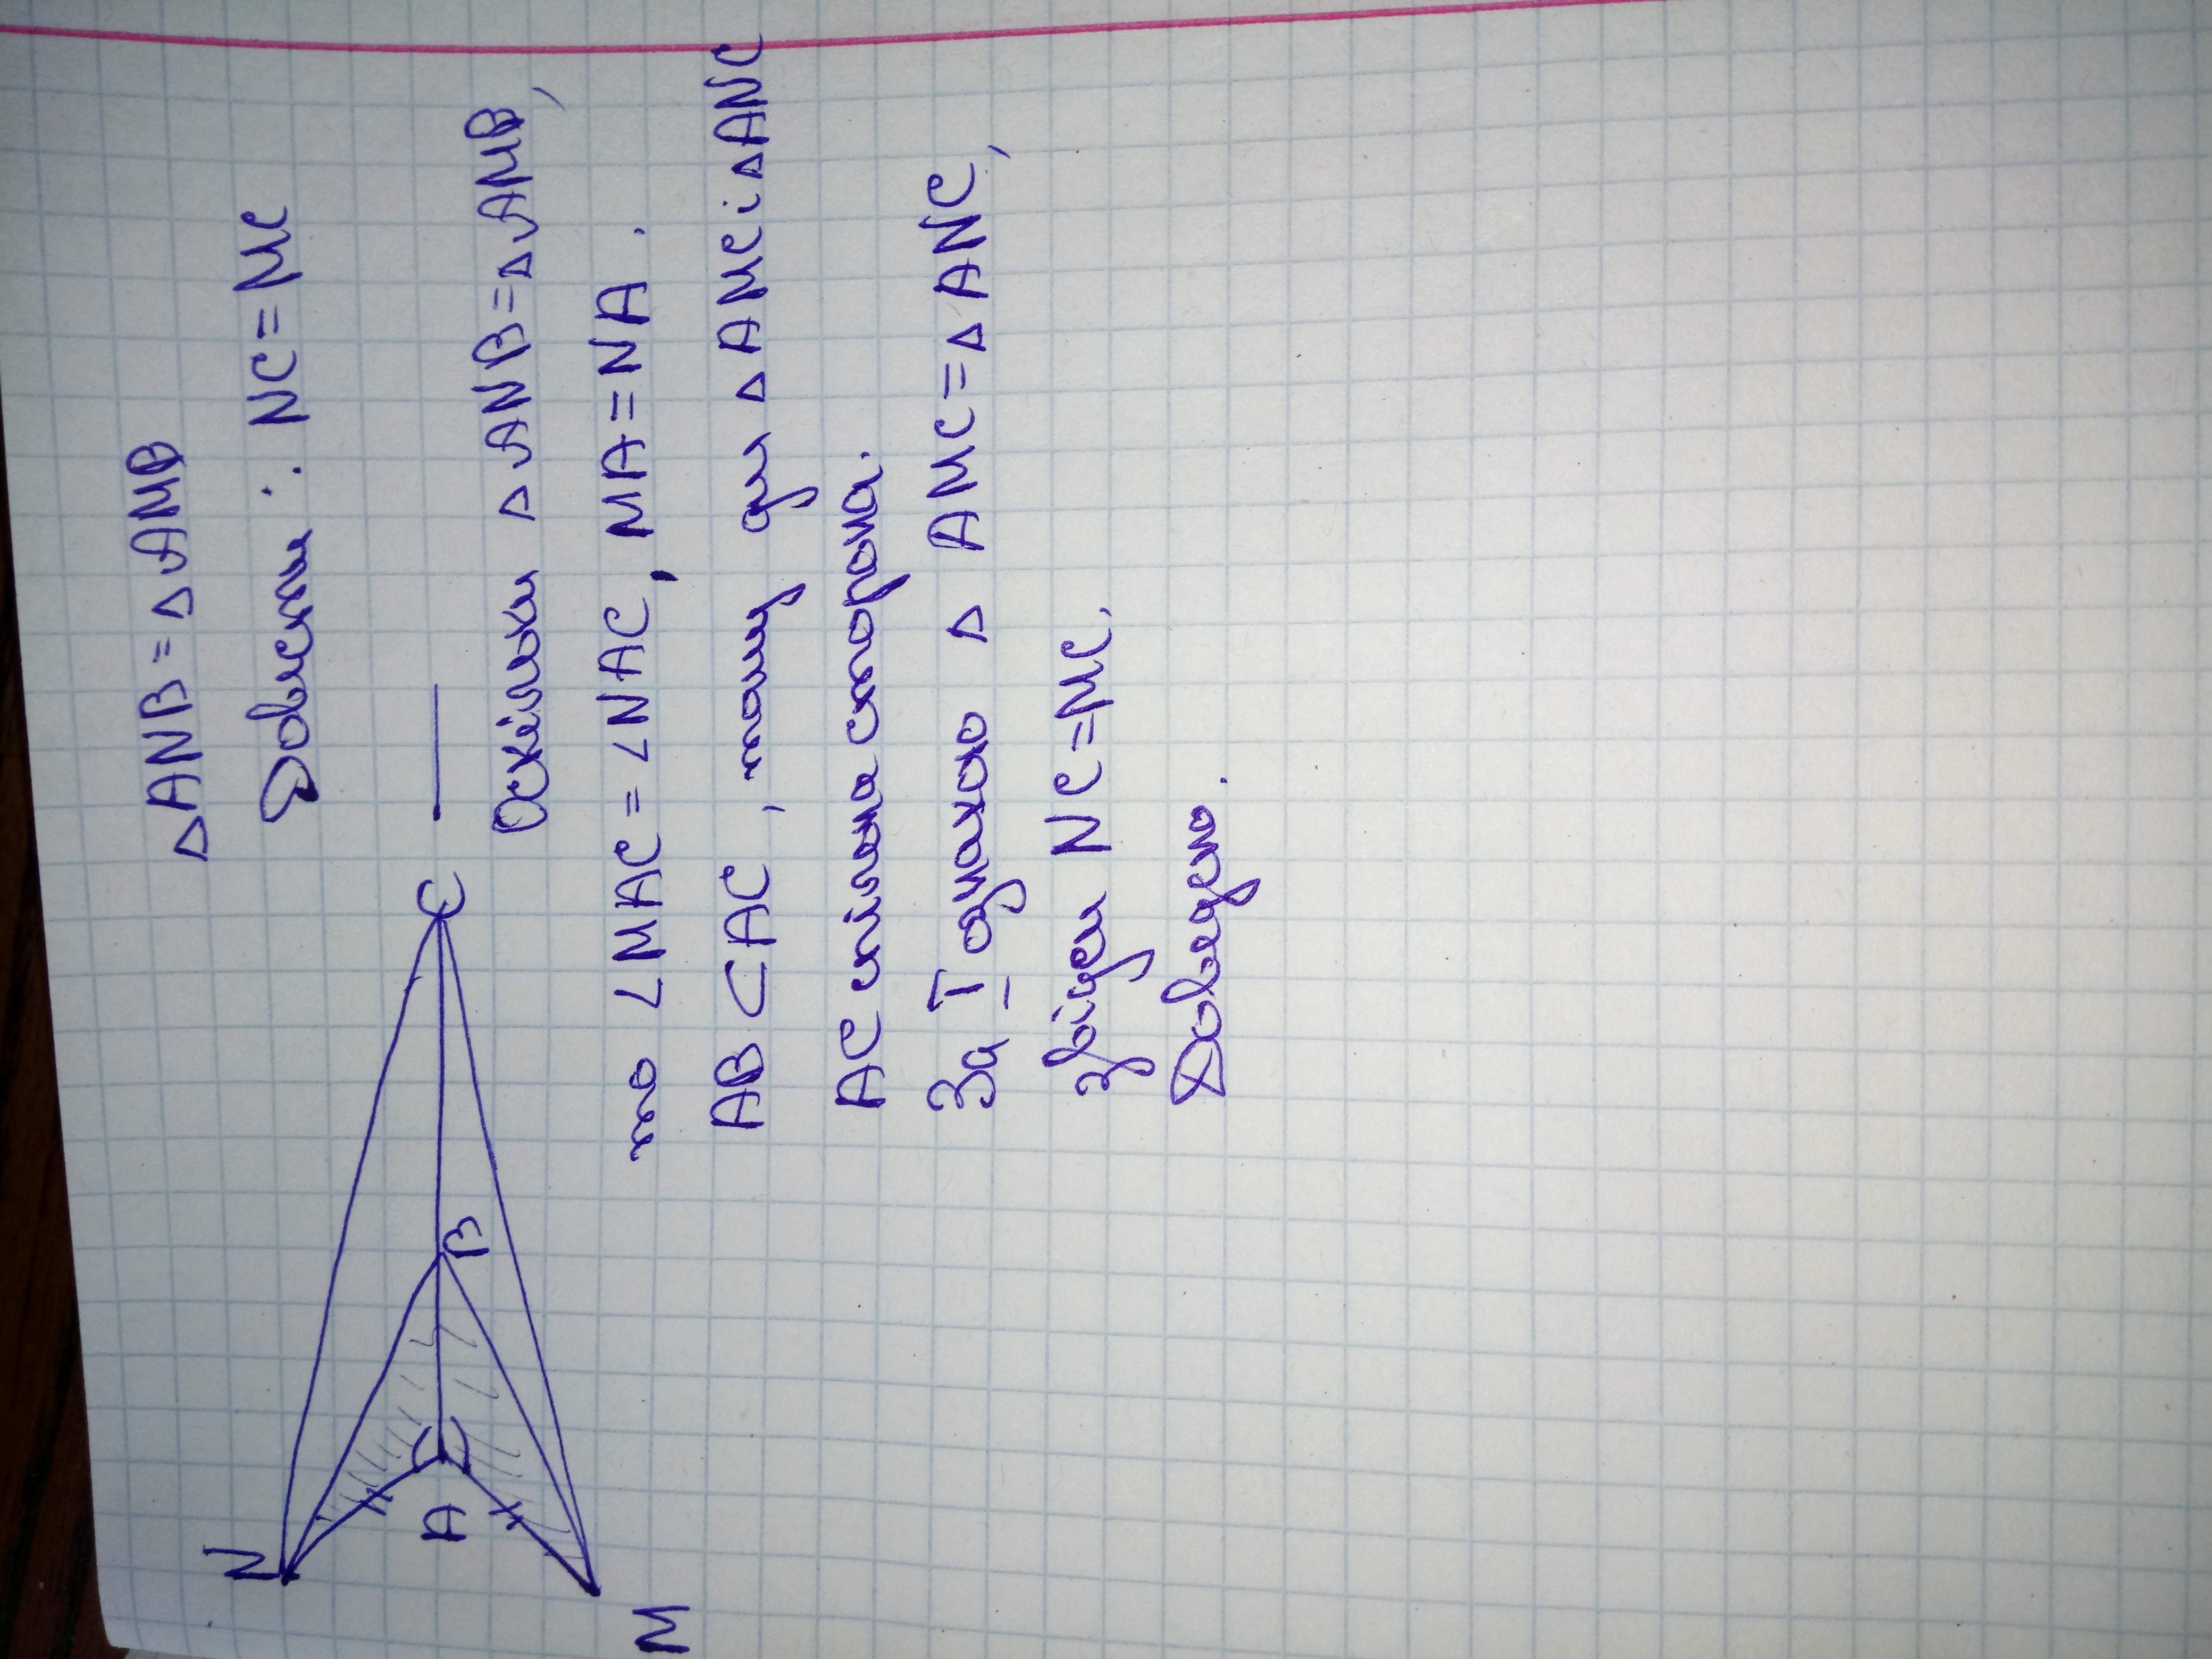 △ANB = △AMB
Довести: NC = MC
N
A
B
C
M
Оскільки △ANB = △AMB,
то ∠MAC = ∠NAC, MA = NA.
AB ⊂ AC, тому для △AMC і △ANC
AC спільна сторона.
За І ознакою △AMC = △ANC,
Звідси NC = MC.
Доведено.